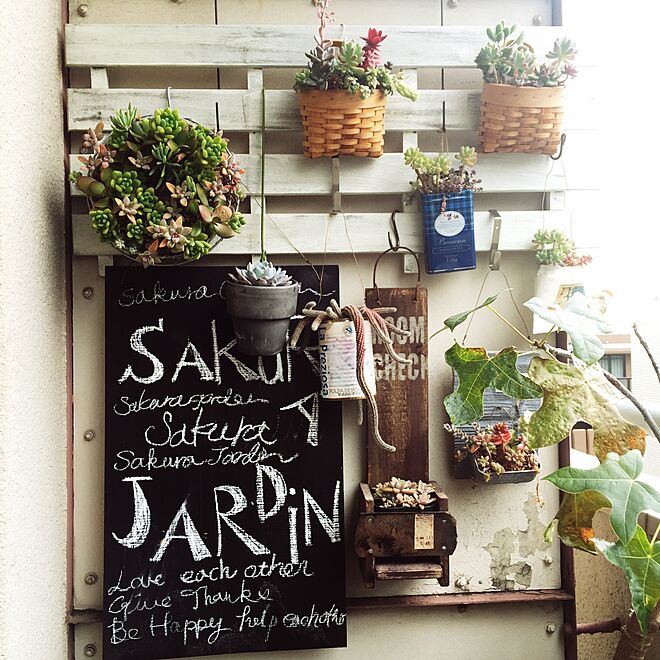 Sakura
SAKURA
Sakura garden
Sakura
Sakura Jarden
JARDiN
Love each other
Give Thanks
Be Happy help eachother
ROOM
CHECK